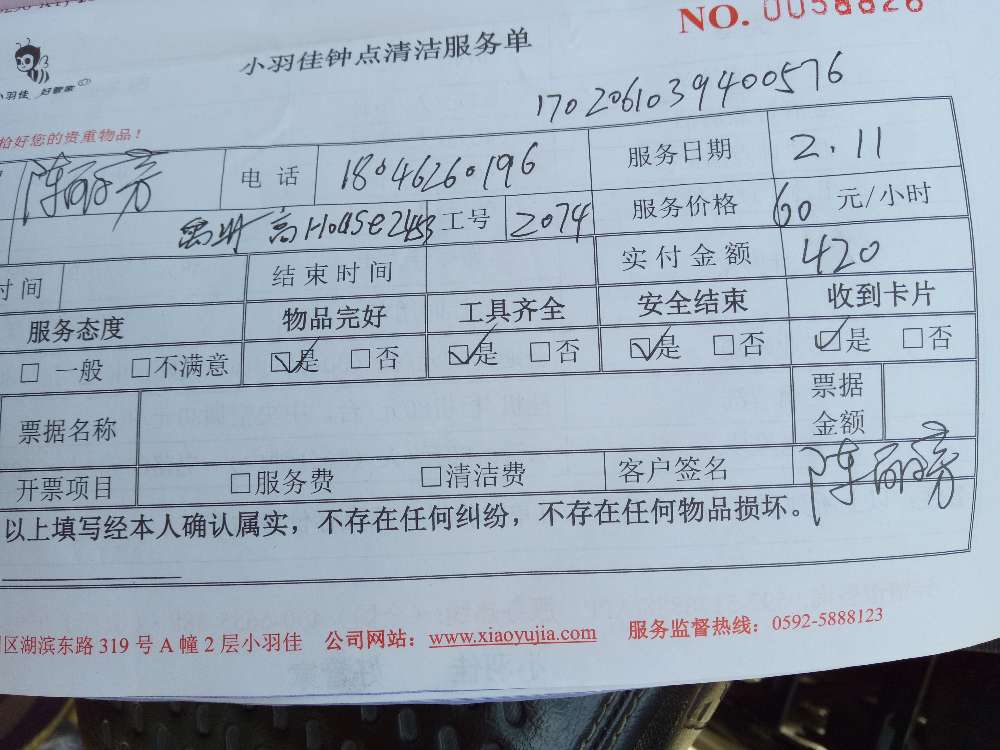 NO. 0058826
小羽佳钟点清洁服务单
小羽佳 好管家
1702061039400576
拾好您的贵重物品！
陈丽芳 电 话 18046260196 服务日期 2.11
禹洲高House2453 工号 2074 服务价格 60 元/小时
时间 结束时间 实付金额 420
服务态度 物品完好 工具齐全 安全结束 收到卡片
□ 一般 □不满意 ☑是 □否 ☑是 □否 ☑是 □否 ☑是 □否
票据名称 票据金额
开票项目 □服务费 □清洁费 客户签名 陈丽芳
以上填写经本人确认属实，不存在任何纠纷，不存在任何物品损坏。
区湖滨东路 319 号 A 幢 2 层小羽佳 公司网站：www.xiaoyujia.com 服务监督热线：0592-5888123